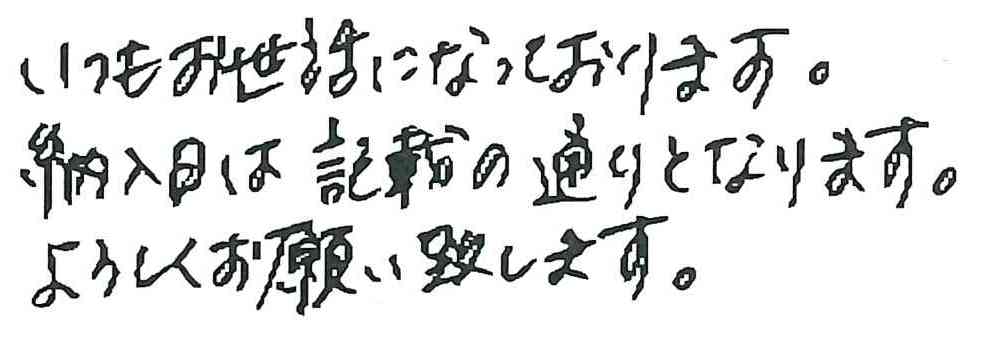 いつもお世話になっております。
納入日は記載の通りとなります。
よろしくお願い致します。